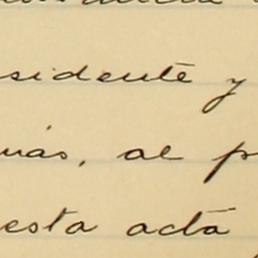 sidente y
más, al p
esta acta